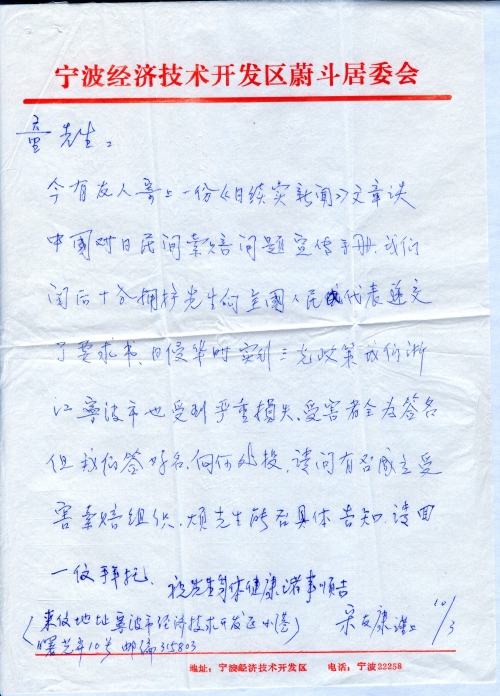 宁波经济技术开发区蔚斗居委会
童先生：
今有友人寄上一份《日续实新闻》文章谈
中國对日民间索赔问题宣传手册，我们
阅后十分拥护先生向全國人民代表递交
了要求书，日侵华时实行三光政策我们浙
江寧波市也受到严重損失，受害者全为签名
但我们签好名，向何处投，请问有否成立受
害索赔组织，烦先生能否具体告知，请回
一仪拜托、祝先生身体健康，诸事顺吉
（来仪地址寧波市经济技术开发区小港 宋友康 10/3
曙光年10号 邮编315803
地址：宁波经济技术开发区 电话：宁波22258